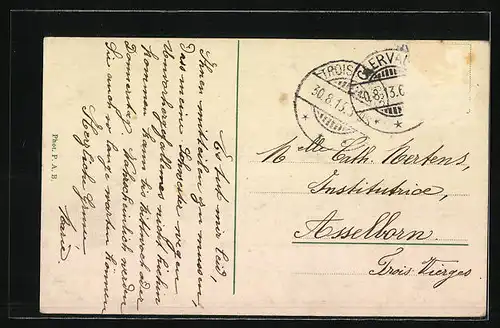 Es tut mir leid,
Ihnen mitteilen zu müssen,
dass meine Schwester wegen
Unvorhergesehenes nicht
kommen kann bis Mittwoch oder
Donnerstag. Wahrscheinlich werden
Sie auch so lange warten können
Herzliche Grüsse
Marie.
Phot. P. A. B.
TROIS
30.8.13.
CLERVAUX
30.8.13.6
Mlle Cath. Mertens,
Institutrice,
Asselborn
Trois Vierges